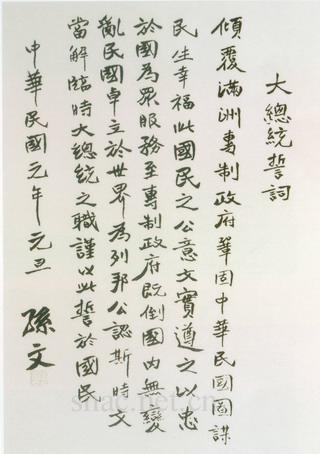 大總統誓詞
傾覆滿洲專制政府鞏固中華民國圖謀
民生幸福此國民之公意文實遵之以忠
於國為眾服務至專制政府既倒國內無變
亂民國卓立於世界為列邦公認斯時文
當解臨時大總統之職謹以此誓於國民
中華民國元年元旦
孫文
shac.net.cn